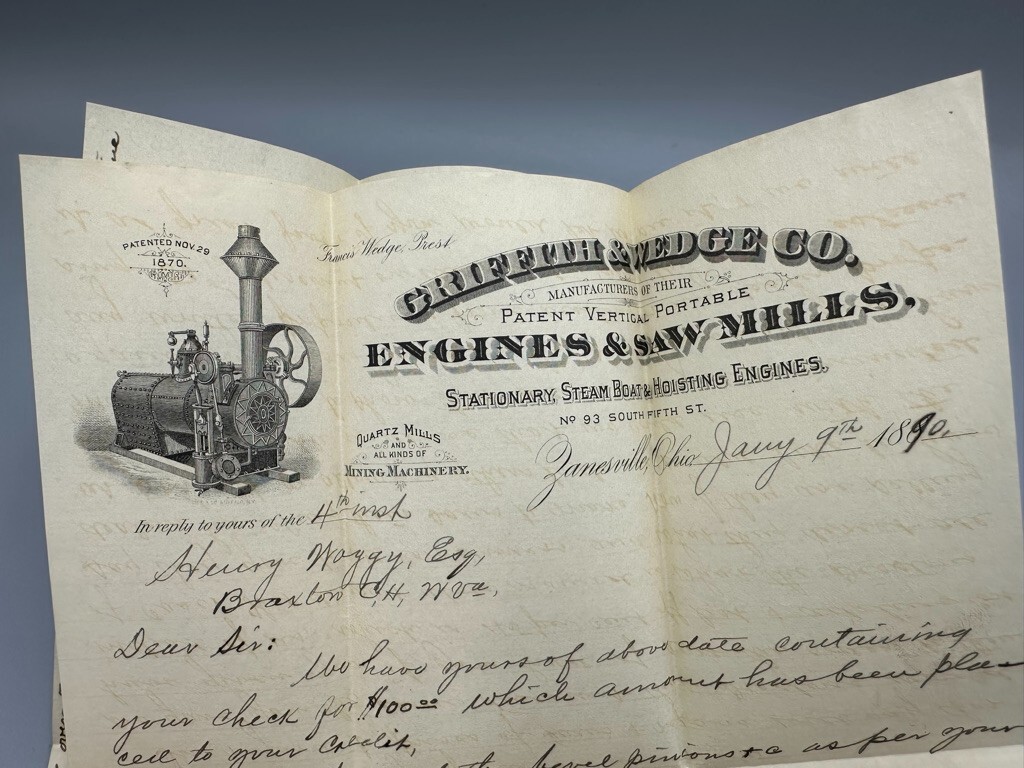 PATENTED NOV. 29
1870.
Francis Wedge, Prest.
GRIFFITH & WEDGE CO.
MANUFACTURERS OF THEIR
PATENT VERTICAL PORTABLE
ENGINES & SAW MILLS,
STATIONARY, STEAM BOAT & HOISTING ENGINES,
No 93 SOUTH FIFTH ST.
QUARTZ MILLS
AND
ALL KINDS OF
MINING MACHINERY.
Zanesville, Ohio, Jany 9th 1890.
In reply to yours of the 4th inst
Henry Waggy, Esq,
Braxton C,H, W va,
Dear Sir:
We have yours of above date containing
your check for $100 00 which amount has been pla-
ced to your Credit,
bevel pinions &c as per your